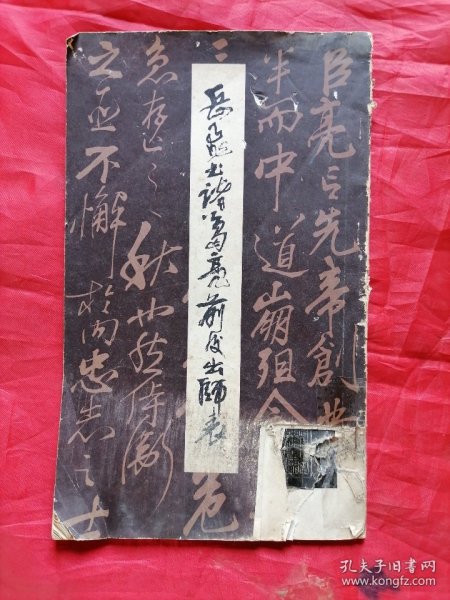 岳飞书诸葛亮前后出师表
臣亮言先帝创业
半而中道崩殂今
三
危
急存亡之秋也然侍卫
之臣不懈於内忠志之士
孔夫子旧书网
www.kongfz.com